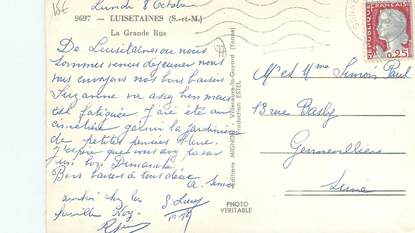 Lundi 8 Octobre
9697 - LUISETAINES (S.-et-M.)
La Grande Rue
De Luisetaines ou nous
sommes venus dejeuner nous
vous envoyons nos bons baisers
Suzanne va assez bien mais
est fatiguée J'ai été au
cimetière garnir la jardinière
de petites pensées bleue.
J'espère que vous avez passé
un bon Dimanche
Bons baisers à tous deux
S. Lucy
famille
Editions MIGNON, Villeneuve-la-Guyard (Yonne)
Production ESTEL
PHOTO
VERITABLE
REPUBLIQUE FRANÇAISE
0,25
Mr et Mme Simon Paul
13 rue
Gennevilliers
Seine